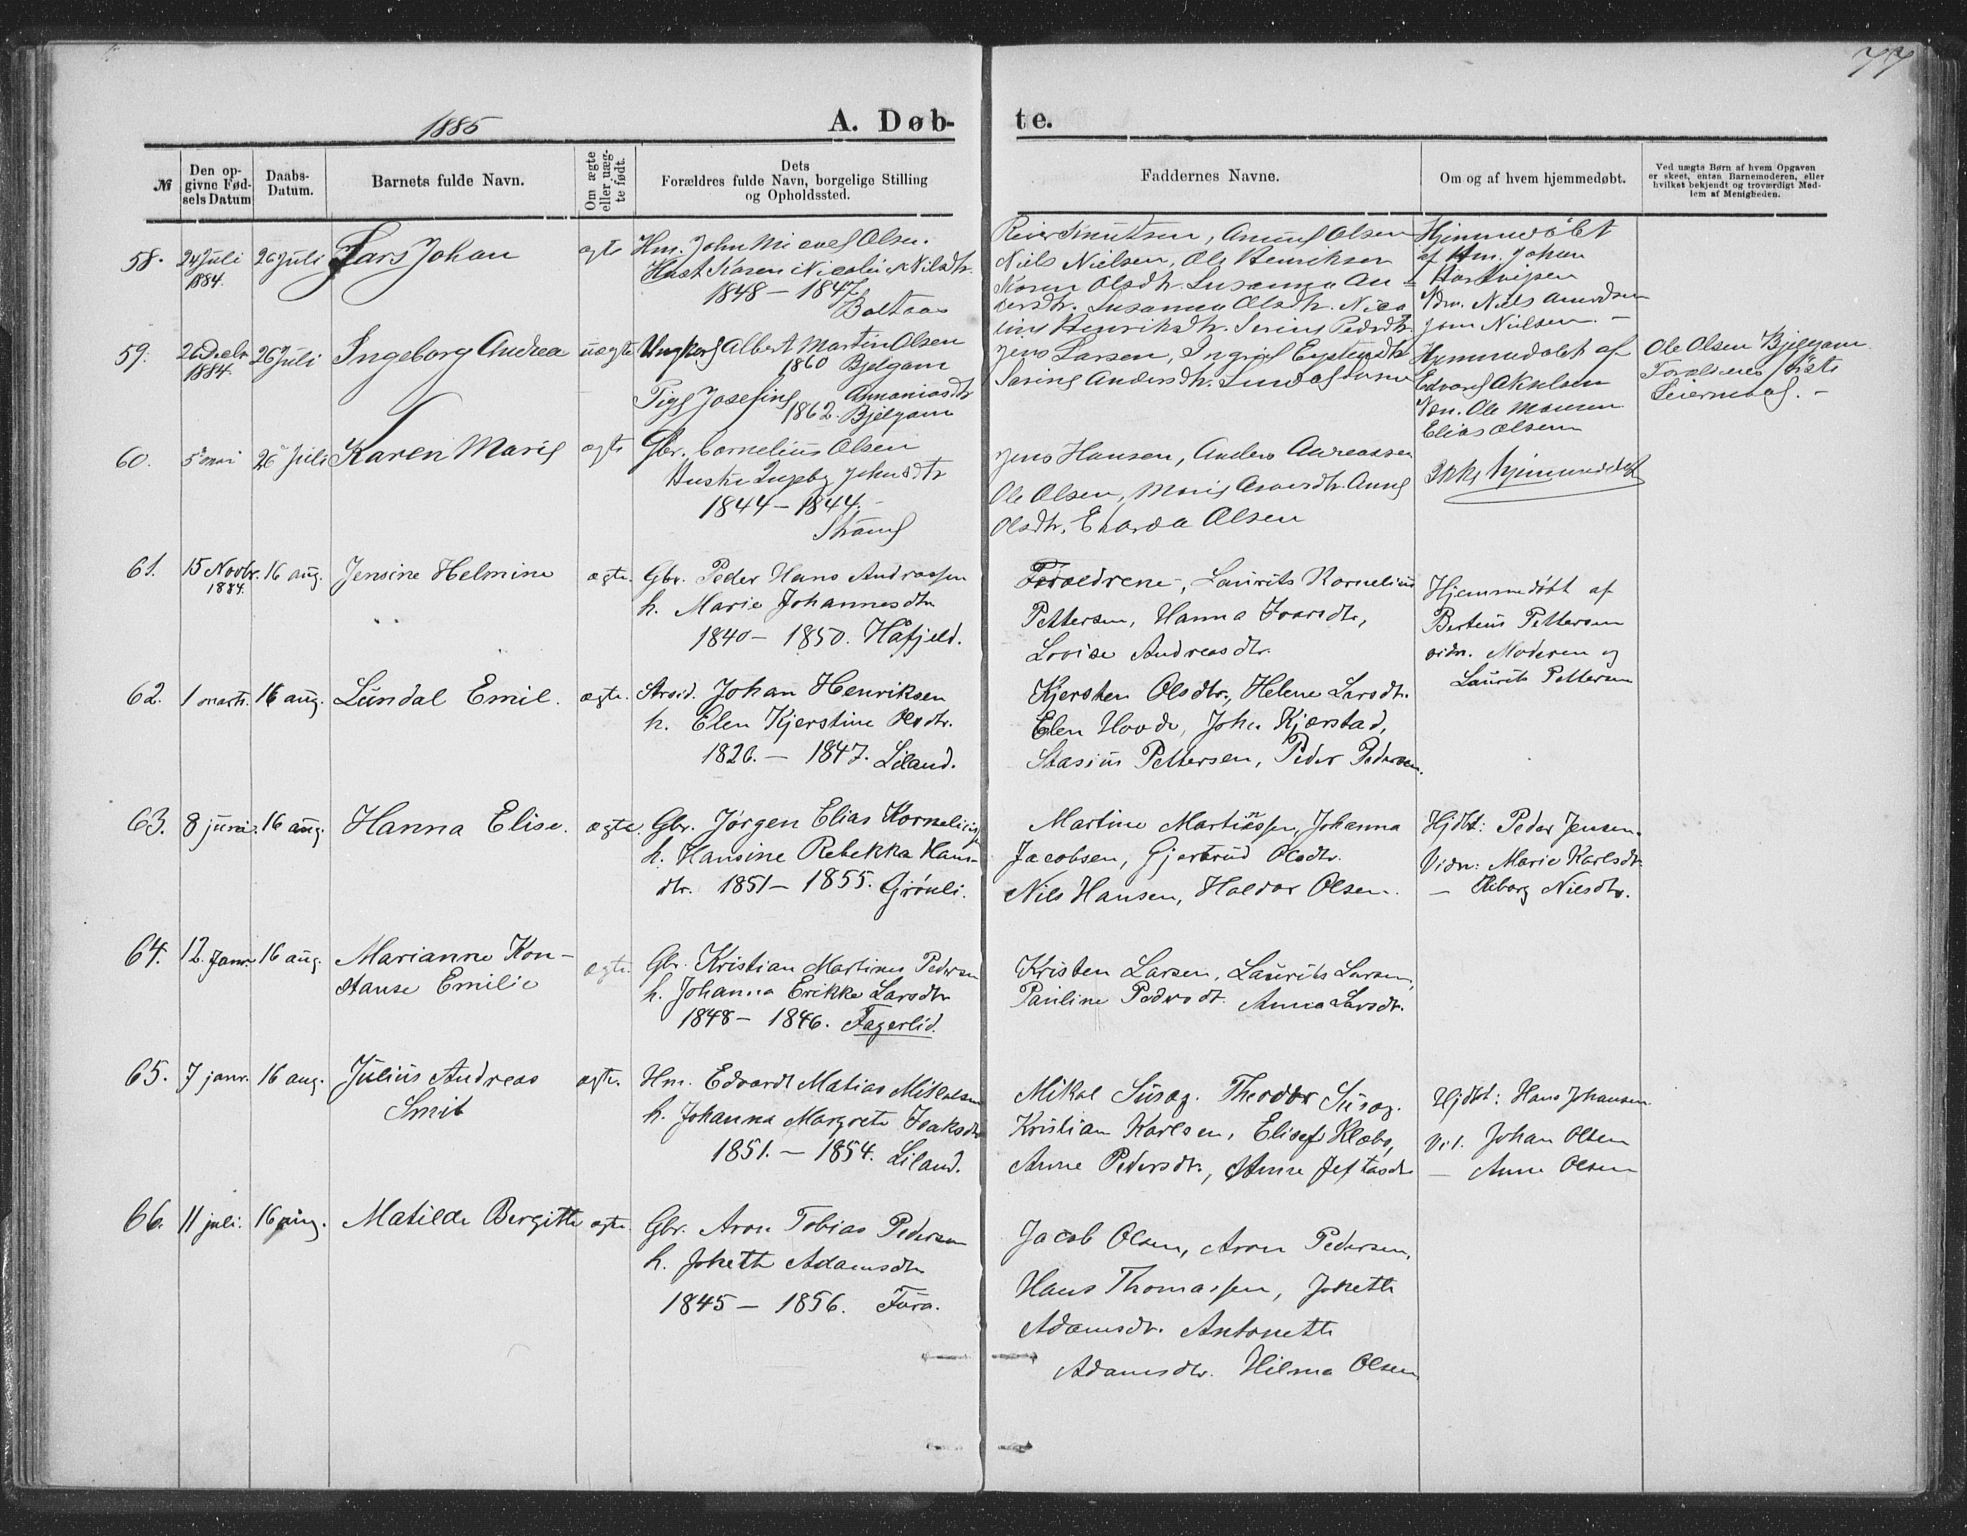 77
1885
A. Døb-
te.
№
Den op-
givne Fød-
sels Datum
Daabs-
Datum.
Barnets fulde Navn.
Om ægte
eller uæg-
te født.
Dets
Forældres fulde Navn, borgelige Stilling
og Opholdssted.
Faddernes Navne.
Om og af hvem hjemmedøbt.
Ved uægte Børn af hvem Opgaven
er skeet, entan Barnemoderen, eller
hvilket bekjendt og troværdigt Med-
lem af Menigheden.
58. 24 Juli 26 Juli Lars Johan
1884.
Olsen.
Karen Nicolei Nilsdtr.
1848 - 1847
Knutsen, Olsen
Niels Nielsen, Ole Henriksen
Karen Olsdtr. Susanna An-
dersdtr. Susanna Olsdtr.
Henriksdtr. Pedsdtr.
Hjemmedøbt
af Hm. Johan
Hartvigsen
Niels
Nielsen. -
59. 26 Decbr 26 Juli Ingeborg Andrea uægte
1884.
Ungkarl Albert Martin Olsen
1860 Bjelgam
Pige Josefine Annaniasdtr
1862. Bjelgam
Jens Larsen, Ingrid
Andersdtr.
Hjemmedøbt af
Edvard
Ole
Elias Olsen
Ole Olsen Bjelgam
Forældrenes første
Leiermaal. -
60. 5 mai 26 Juli Karen Marie ægte
Gbr. Cornelius Olsen
Hustr. Ingebg Johnsdtr
1844 - 1844.
Strand
Jens Hansen, Anders Andreassen
Ole Olsen, Marie Anna
Olsdtr. Olsen
Ikke hjemmedøbt
61. 15 Novbr. 16 aug. Jensine Helmine ægte.
1884.
Gbr. Peder Hans Andreassen
h. Marie Johannesdtr
1840 - 1850. Håfjeld.
Forældrene, Laurits Kornelius
Pettersen, Hanna Ivarsdtr,
Lovise Andreasdtr.
Hjemmedøbt af
Berteus Pettersen
vidn. Moderen og
Laurits Pettersen
62. 1 marts. 16 aug. Lundal Emil. ægte.
Johan Henriksen
h. Elen Kjerstine Olsdtr.
1826. - 1847. Liland.
Kjersten Olsdtr., Helene Larsdtr.
Elen Hovde, John Kjerstad,
Stasius Pettersen, Peder Pedersen.
63. 8 juni. 16 aug. Hanna Elise. ægte.
Gbr. Jørgen Elias Korneliussen
h. Hansine Rebekka Hans-
dtr. 1851 - 1855. Grönli.
Martine Martinssen, Johanna
Jacobsen, Gjertrud Olsdtr.
Nils Hansen, Haldor Olsen.
Hjdbt: Peder Jensen.
Vidn: Marie Karlsdtr.
- Nilsdtr.
64. 12. Janr. 16 aug. Marianne Kon-
stanse Emilie ægte.
Gbr. Kristian Martines Pedersen
h. Johanna Erikke Larsdtr
1848 - 1846. Fagerlid.
Kristen Larsen, Laurits Larsen,
Pauline Pedersdt. Anna Larsdtr.
65. 7 janr. 16 aug. Julius Andreas
Smit ægte.
Hm. Edvardt Matias Mikalsen
h. Johanna Margrete Isaksdtr
1851. - 1854. Liland.
Mikal Susag. Theodor Susag.
Kristian Karlsen, Elisef Klæbo,
Anne Pedersdtr., Anne Jeftasdt
Hjdbt: Hans Johansen
Vit. Johan Olsen
- Anne Olsen
66. 11 juli. 16 aug. Matilde Bergitte ægte.
Gbr. Aron Tobias Pedersen
h. Jokette Adamsdtr
1845 - 1856. Fura.
Jacob Olsen, Aron Pedersen,
Hans Thomassen, Jokette
Adamsdtr. Antonette
Adamsdtr. Hilma Olsen